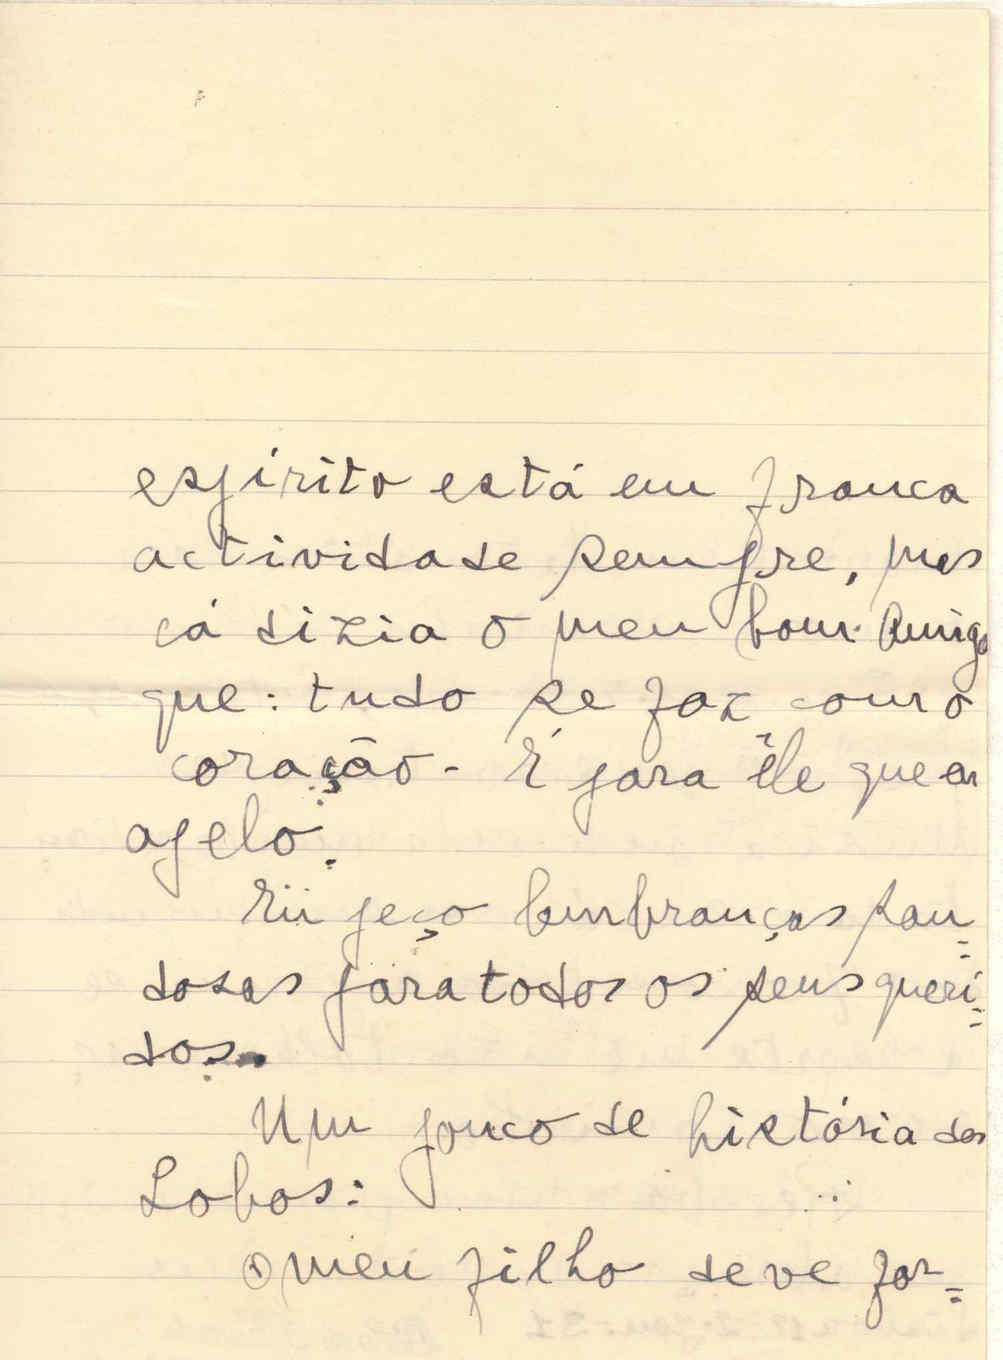 espírito está em franca
actividade sempre, mas
cá dizia o meu bom Amigo
que: tudo se faz com o
coração - É para êle que eu
apelo.
Eu peço lembranças sau=
dosas para todos os seus queri=
dos.
Um pouco de história dos
Lobos:
O meu filho deve for=